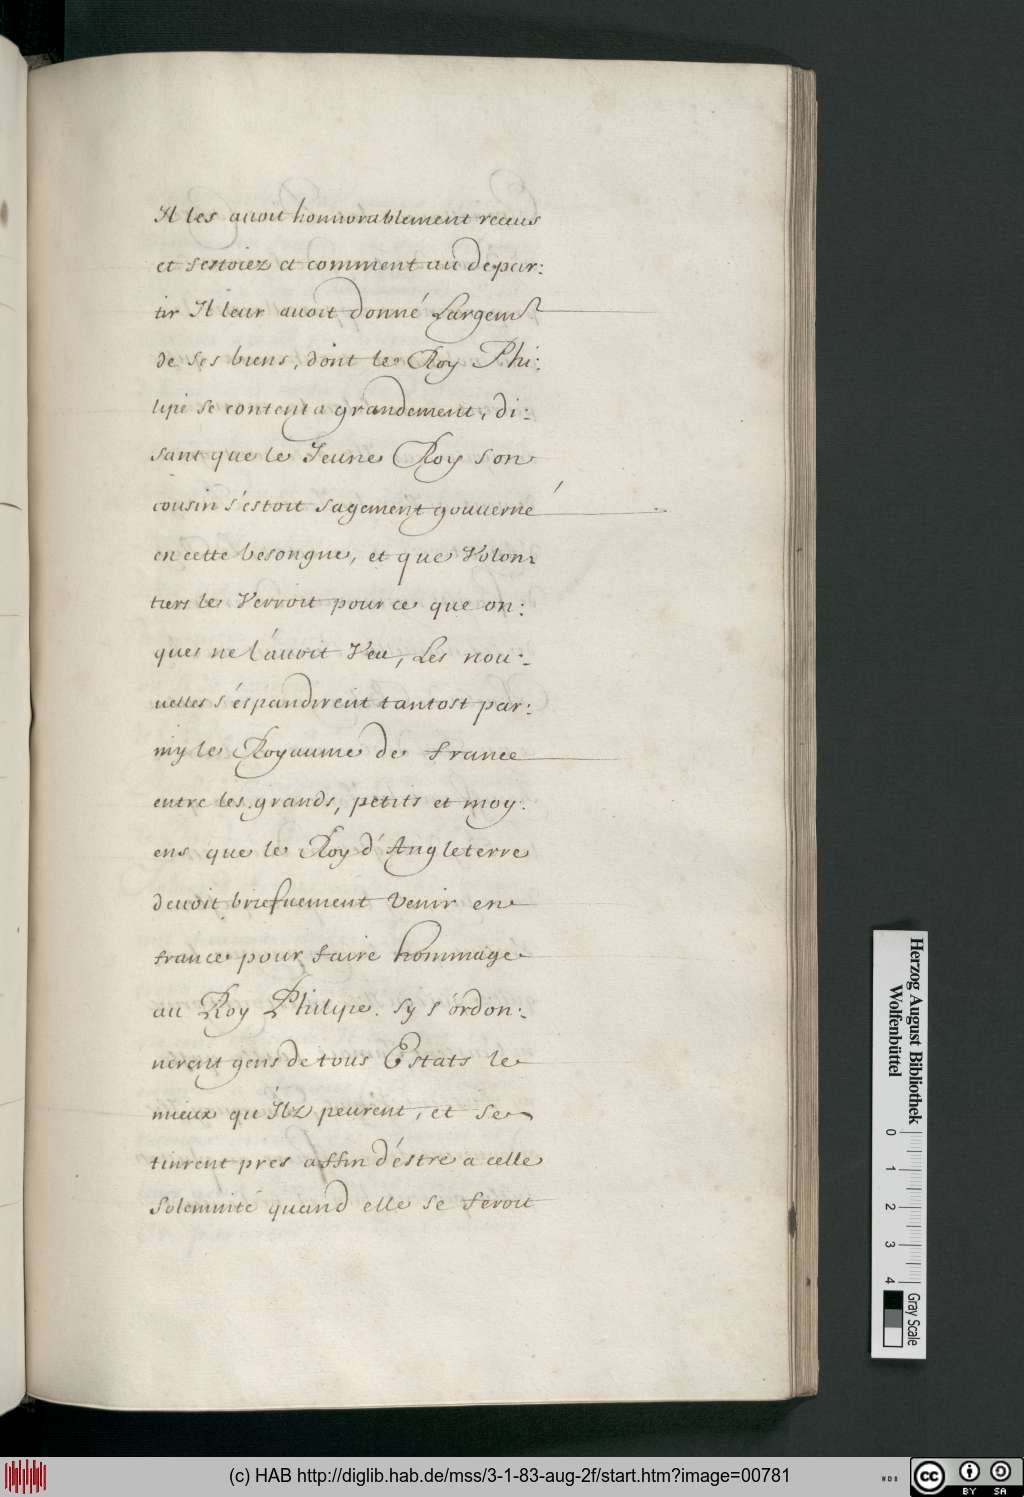 Il les auoit honnorablement receus
et festoiez et comment au depar:
tir Il leur auoit donné Largemt
de ses biens, dont le Roy Phi:
lipe se contenta grandement, di:
sant que le Jeune Roy son
cousin s'estoit sagement gouuerné
en cette besongne, et que Volon:
tiers le Verroit pour ce que on:
ques ne l'auoit Veu, Les nou:
uelles s'éspandirent tantost par:
my le Royaume de france
entre les grands, petits et moy:
ens que le Roy d'Angleterre
deuoit briefuement Venir en
france pour faire hommage
au Roy Philipe. Sy s'ordon:
nerent gens de tous Estats le
mieux qu'Ilz peurent, et se
tinrent pres affin d'éstre a celle
solemnité quand elle se feroit
Herzog August Bibliothek
Wolfenbüttel
0 1 2 3 4
Gray Scale
(c) HAB http://diglib.hab.de/mss/3-1-83-aug-2f/start.htm?image=00781
WDB
cc BY SA